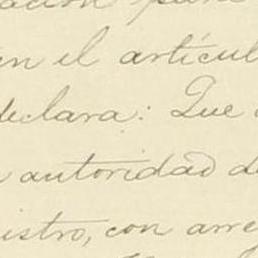 ación para
en el artícul
declara: Que
autoridad de
istro, con arre